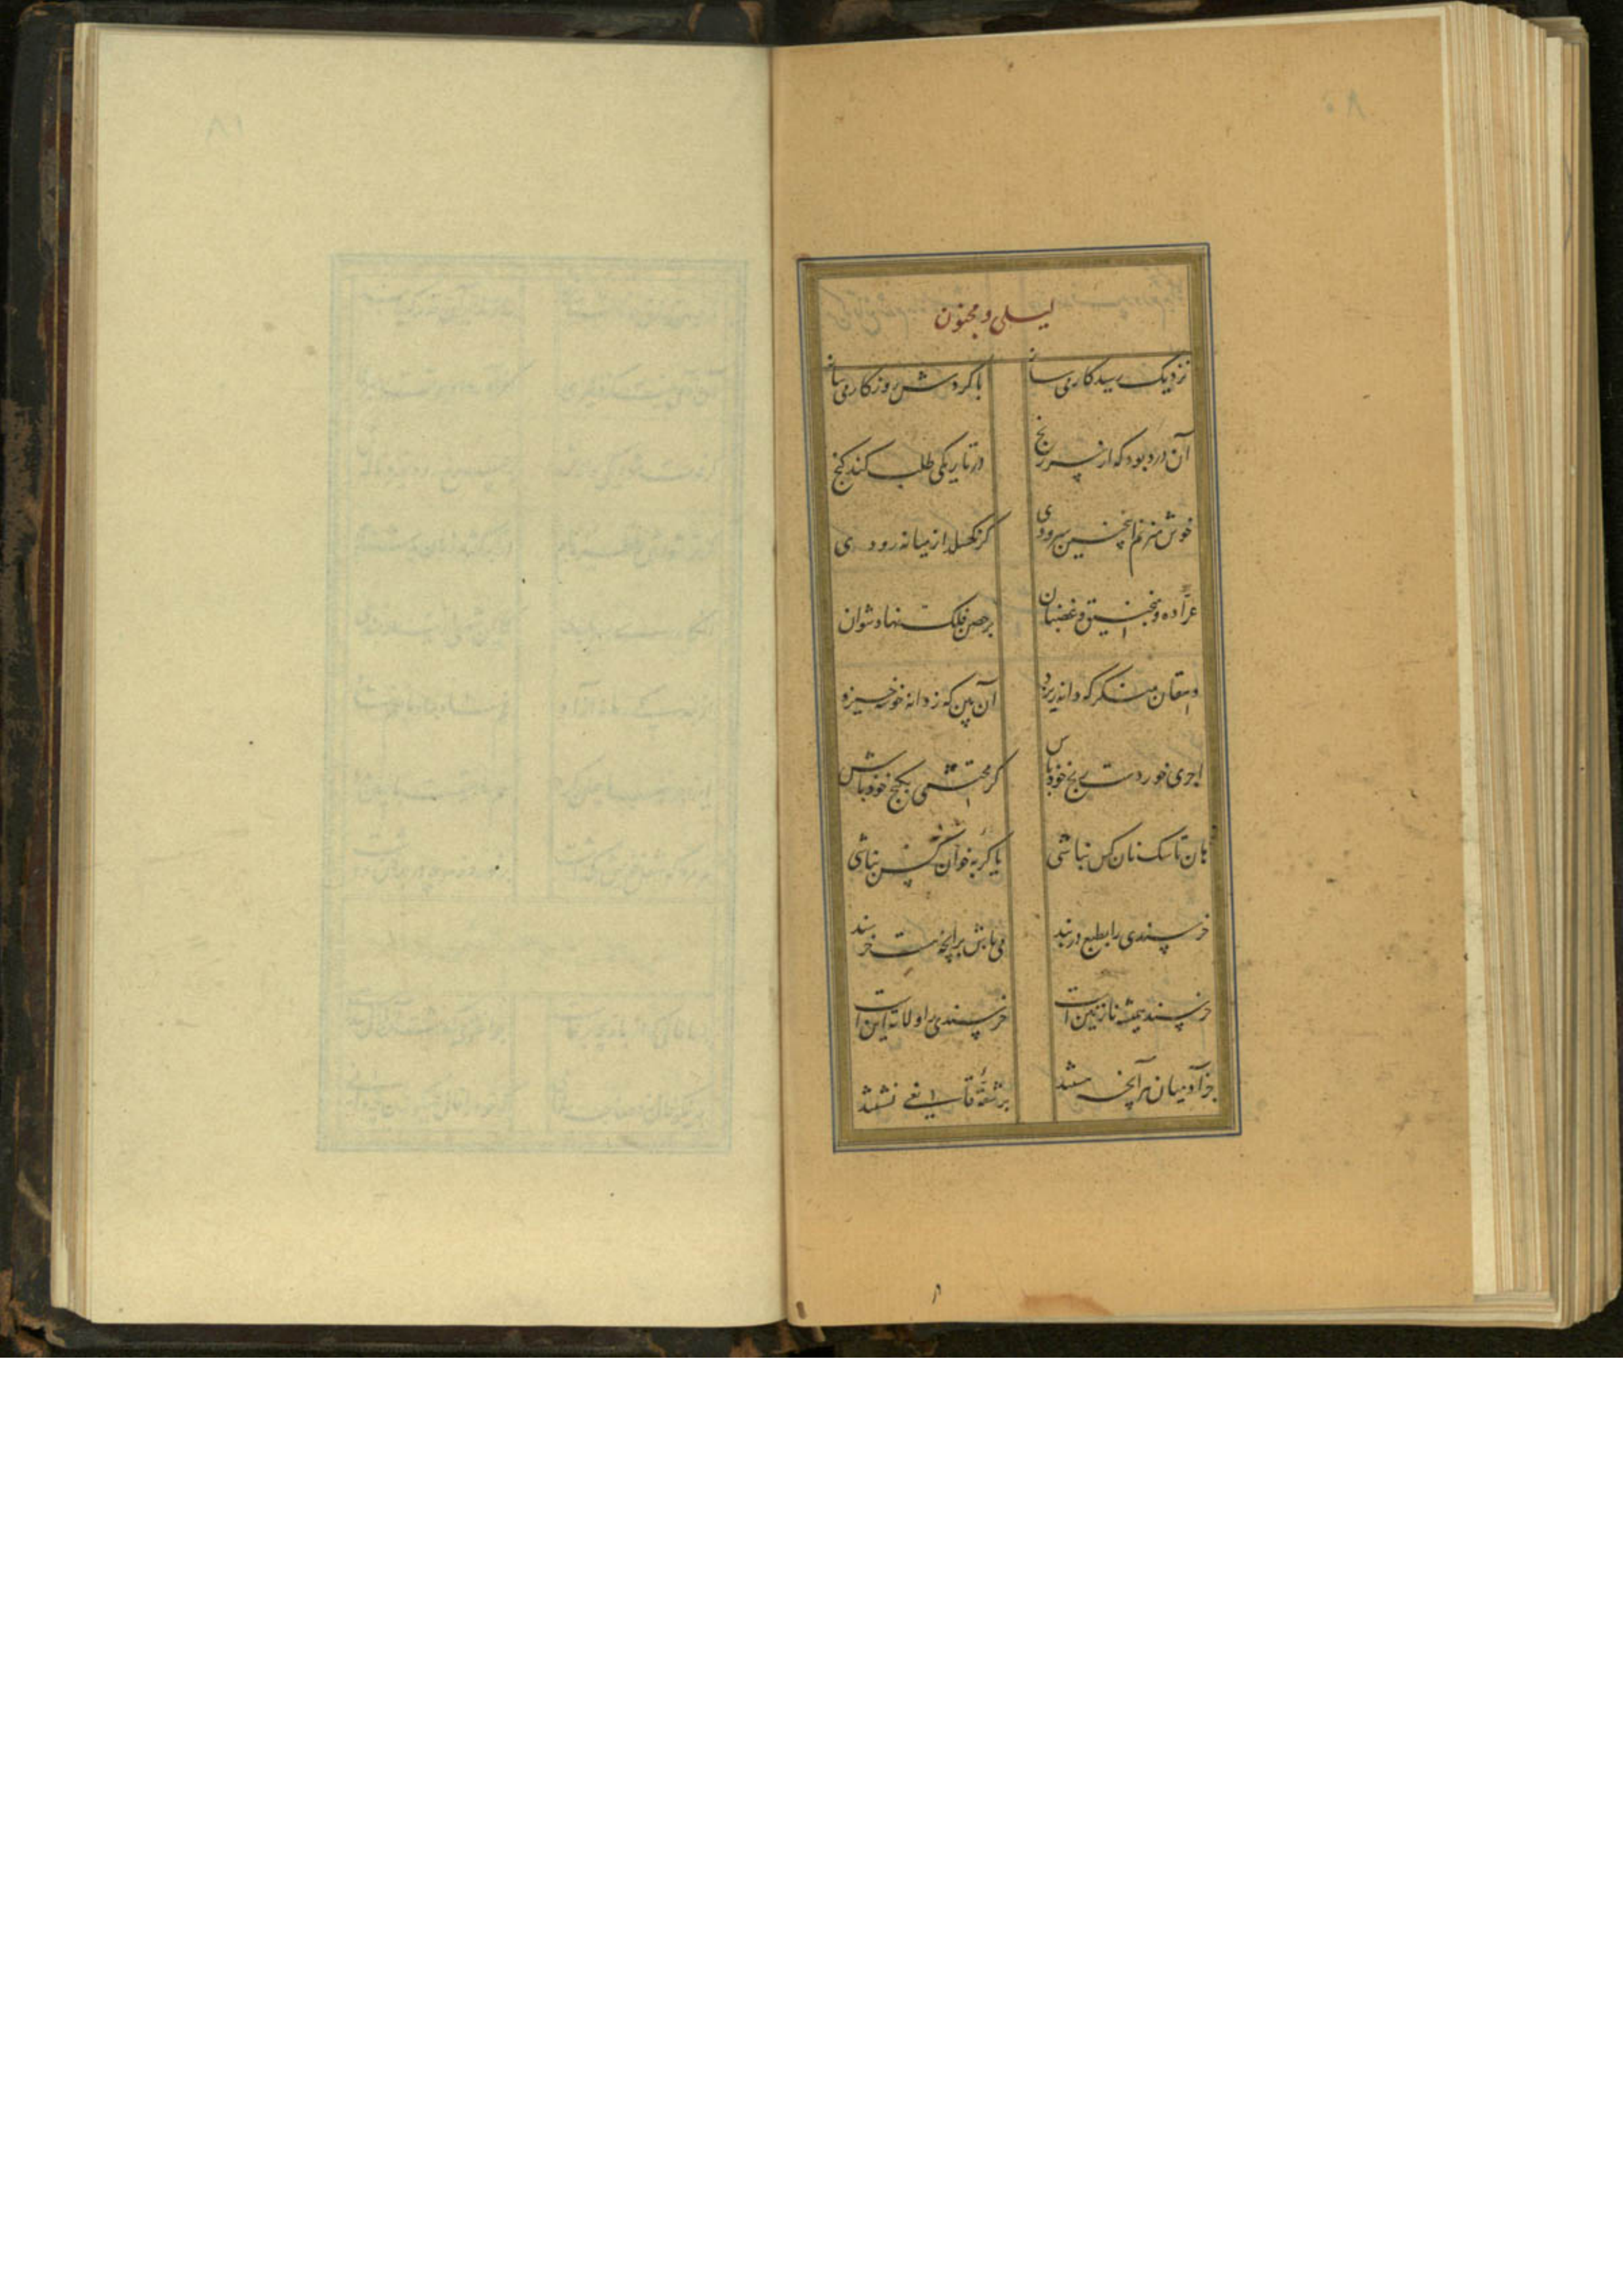 لیلی و مجنون
نزدیک رسید کار می ساز با گردش روزگار می ساز
آن درد بود که از سر رنج در تاریکی طلب کند گنج
خوش میزنم اینچنین سرودی گر نگسلد از میانه رودی
عرّاده و منجنیق و غضبان بر حصن فلک نهاد نتوان
دهقان منگر که دانه ریزد آن بین که ز دانه خوشه خیزد
اجری خور دست رنج خود باش گر محتشمی بگنج خود باش
هان تا سگ نان کس نباشی یا گربه خوان کس نباشی
خرسندی را بطبع در بند می باش بدانچه هست خرسند
خرسند همیشه نازنین است خرسندی را ولایت این است
جز آدمیان هر آنچه هستند بر شقّهٔ قانعی نشستند